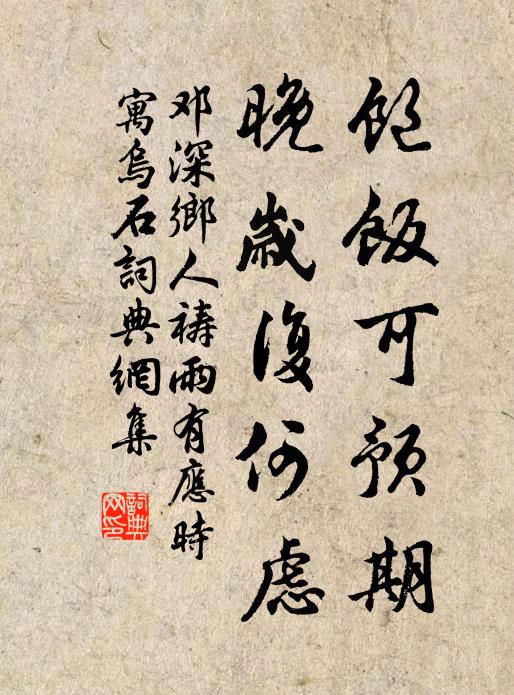 飽飯可預期
晚歲復何慮
邓深鄉人禱雨有應時
寓烏石詞典網集
詞典网印